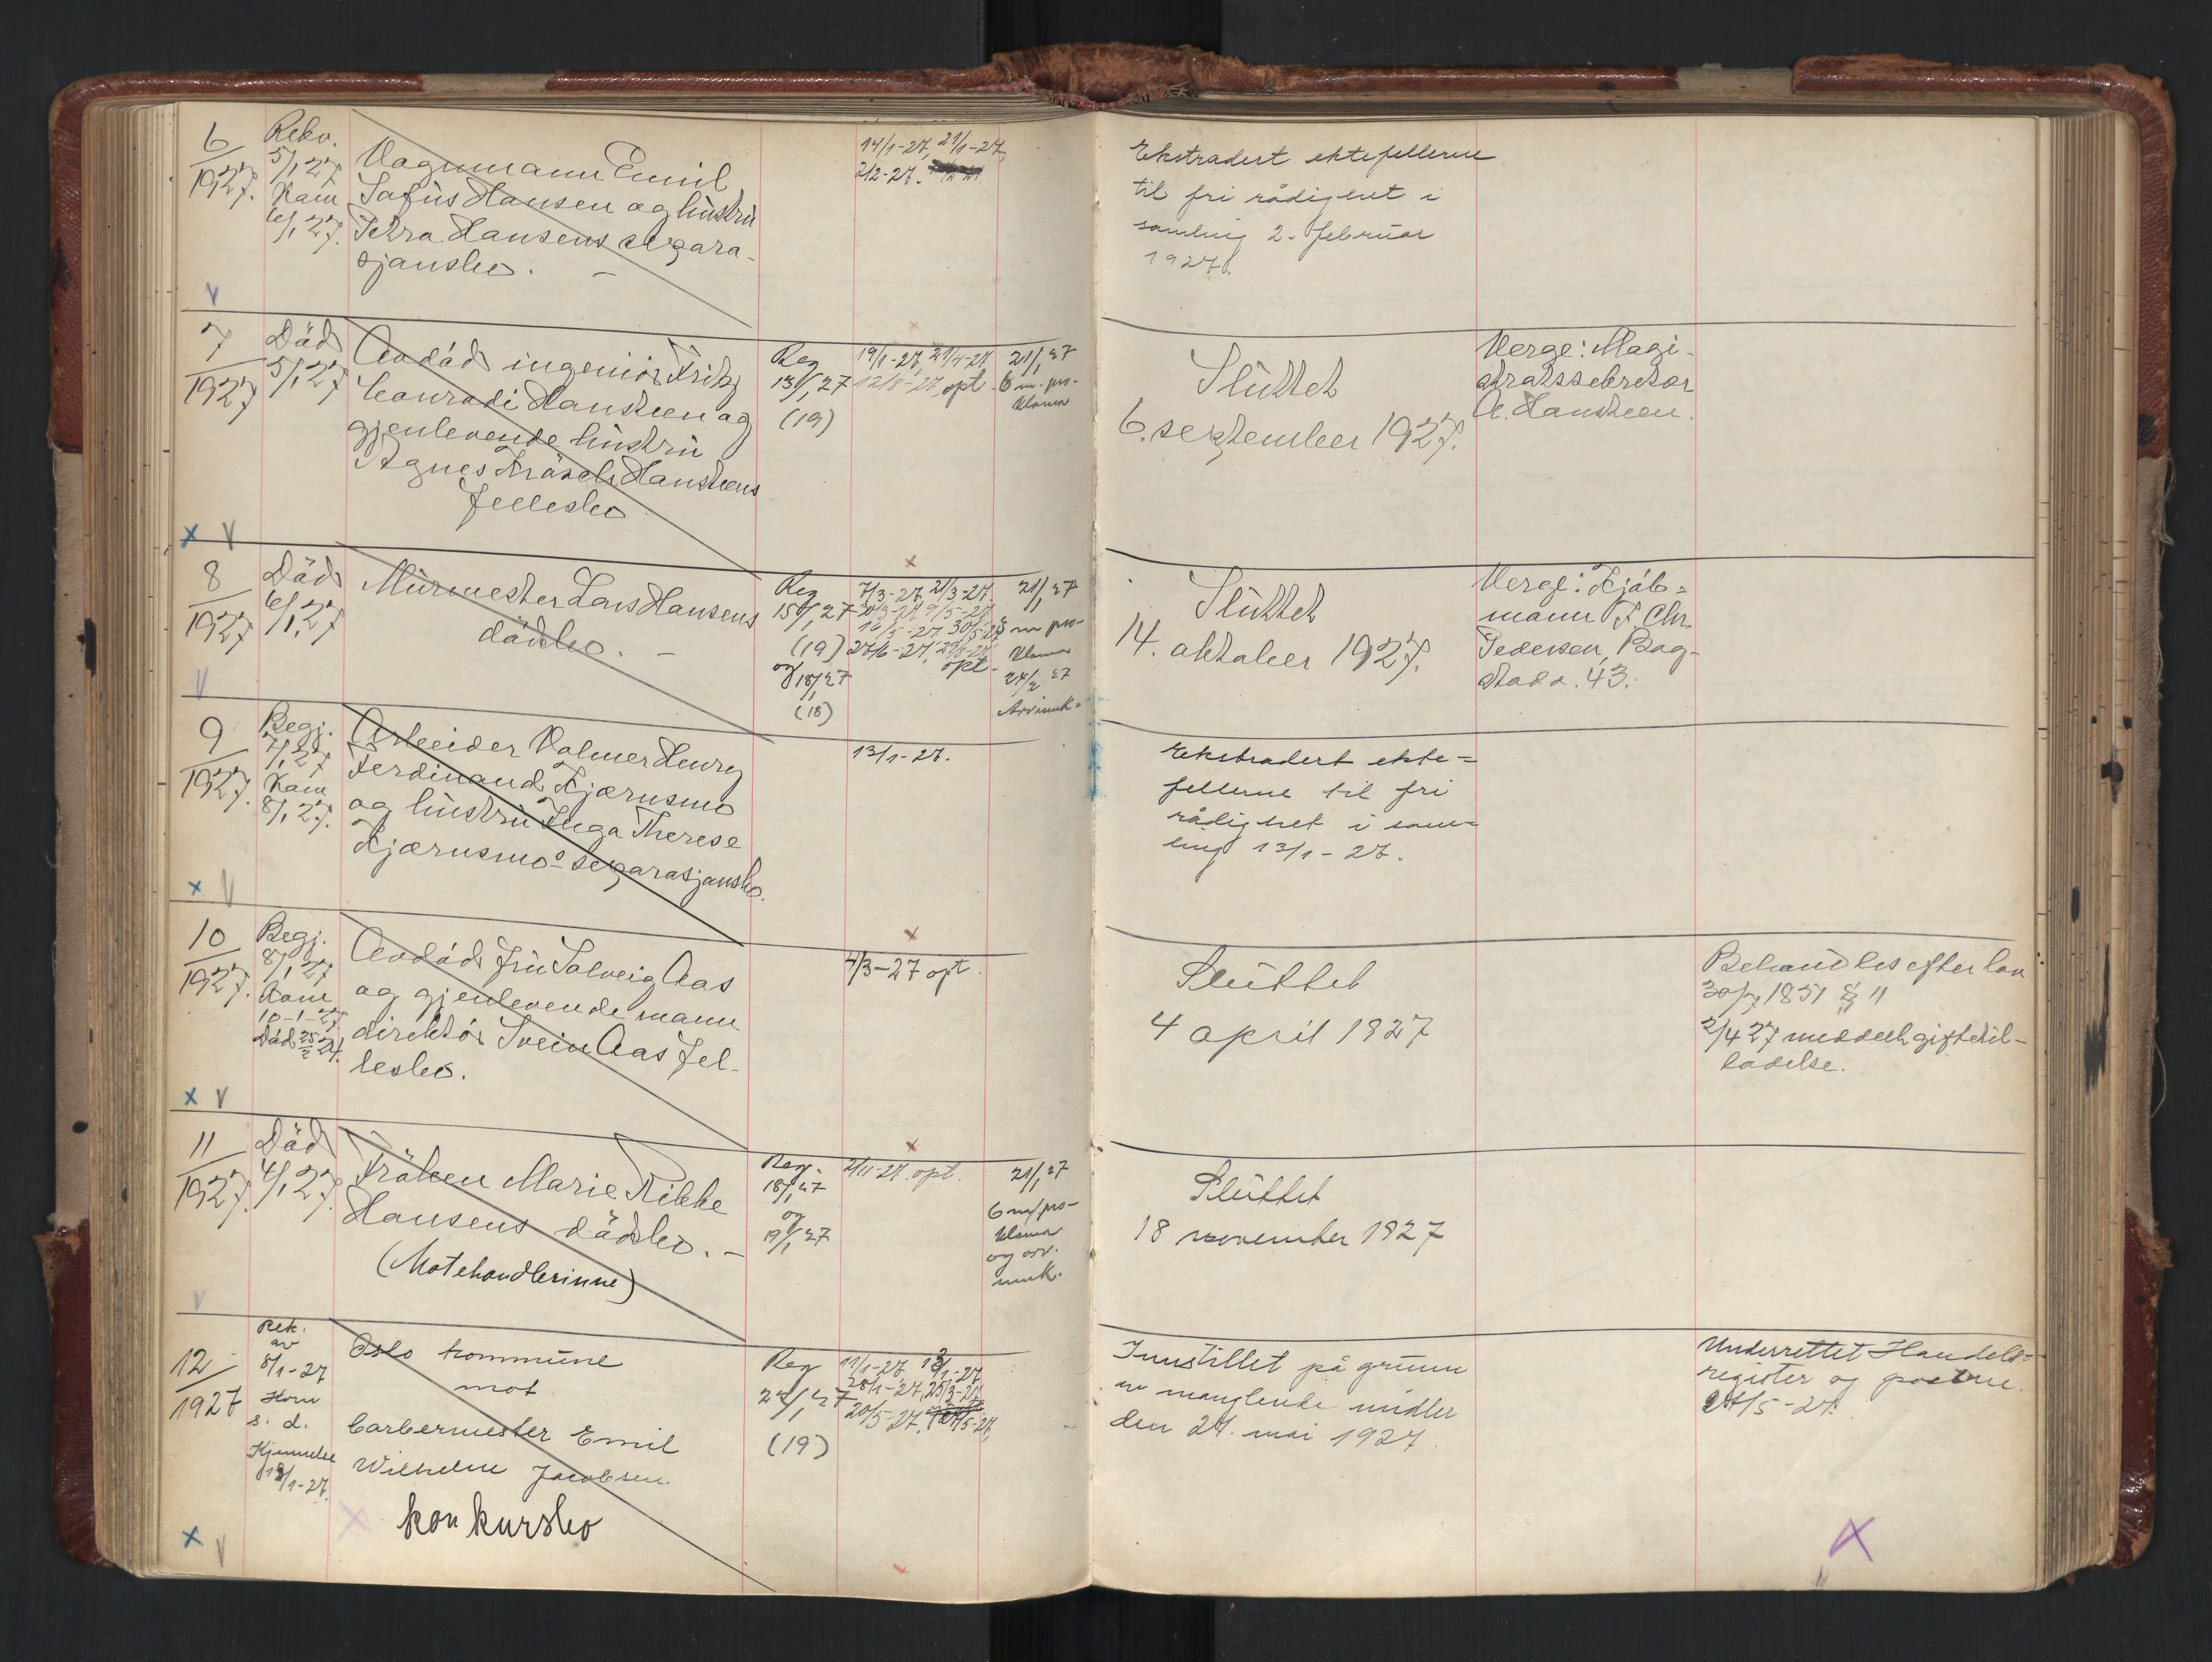 6
1927.
Rekv.
5/1 27
Kom
6/1 27.
Vognmann Emil
Sofus Hansen og hustru
Petra Hansens separa-
sjonsbo. —
14/1-27, 21/1-27,
2/2-27.
Ekstradert ektefellerne
til fri rådighet i
samling 2. februar
1927.
V
7
1927
Död
5/1 27
Avdöd ingeniör Fritz
Conradi Hansteen og
gjenlevende hustru
Agnes Hansteens
fellesbo
Reg
13/1 27
(19)
19/1-27, 21/4-27
12/8-27, opt
21/1 27
6 m. pro-
klama
Sluttet
6. september 1927.
Verge: Magi-
stratssekretær
A. Hansteen.
X V
8
1927
Död
6/1 27
Murmester Lars Hansens
dödsbo. —
Reg
15/1 27
(19)
og 18/1 27
(18)
7/3-27, 21/3-27.
9/5-27
16/5-27. 30/5-27
27/6-27,
opt-
21/1 27
m pro-
klama
24/2 27
Arvinnk.
Sluttet
14. oktober 1927.
Verge: Kjöb=
mann F. Chr.
Pedersen, Bog-
stadv. 43.
V
9
1927.
Begj.
7/1 27
Kom
8/1 27.
Arbeider Volmer Henry
Ferdinand Kjærnsmo
og hustru Inga Therese
Kjærnsmos separasjonsbo.
13/1-27.
Ekstradert ekte=
fellerne til fri
rådighet i sam=
ling 13/1-27.
X V
10
1927.
Begj.
8/1 27
Kom
10-1-27.
Död 25/2 24.
Avdöd fru Solveig Aas
og gjenlevende mann
direktör Svein Aas fel-
lesbo.
4/3-27 opt
Sluttet
4 april 1927
Behandles efter lov
30/7 1851 § 11
2/4 27 meddelt giftetil-
ladelse.
X V
11
1927.
Död
4/1 27.
Fröken Marie Rikke
Hansens dödsbo. —
(Motehandlerinne)
Reg.
18/1 27
og
19/1 27
2/11-27. opt.
21/1 27
6 m/pro-
klama
og arv.
innk.
Sluttet
18 november 1927
V
12
1927
Rek.
av
8/1-27
Kom
s. d.
Kjennelse
13/1-27.
Oslo kommune
mot
Barbermester Emil
Wilhelm Jacobsen
konkursbo
Reg
22/1 27
(19)
11/1-27, 13/1-27,
28/1-27, 25/3-27,
20/5-27.
Innstillet på grunn
av manglende midler
den 24. mai 1927
Underrettet Handels=
register og postene.
24/5-27.
X V